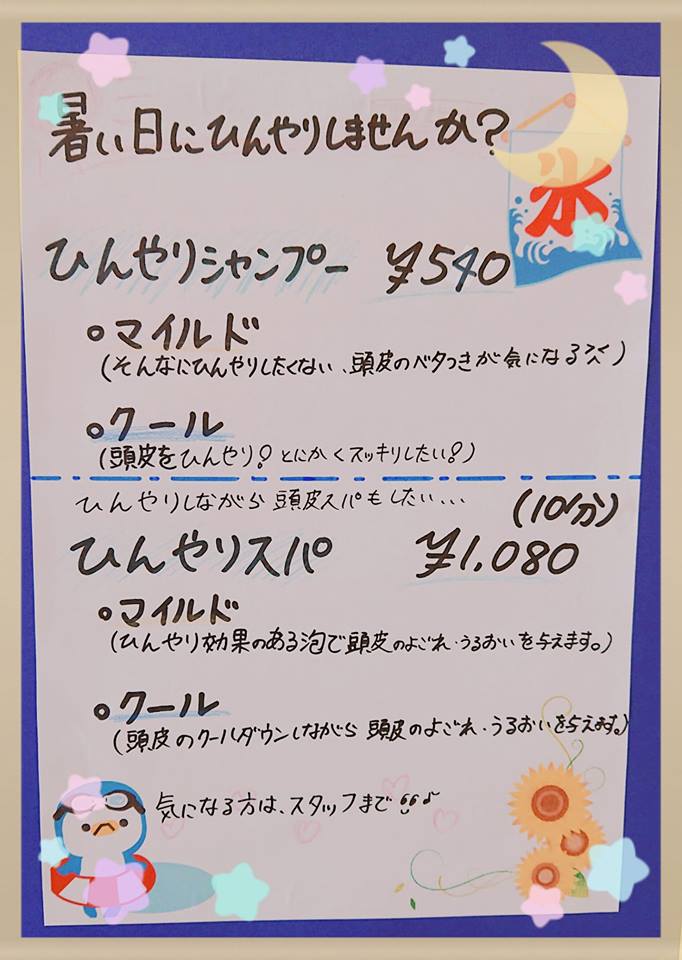 暑い日にひんやりしませんか?
氷
ひんやりシャンプー ¥540
○マイルド
(そんなにひんやりしたくない、頭皮のベタつきが気になる)
○クール
(頭皮をひんやり?とにかくスッキリしたい?)
ひんやりしながら頭皮スパもしたい...
(10分)
ひんやりスパ ¥1,080
○マイルド
(ひんやり効果のある泡で頭皮のよごれ・うるおいを与えます。)
○クール
(頭皮のクールダウンしながら頭皮のよごれ・うるおいを与えます。)
気になる方は、スタッフまで♪